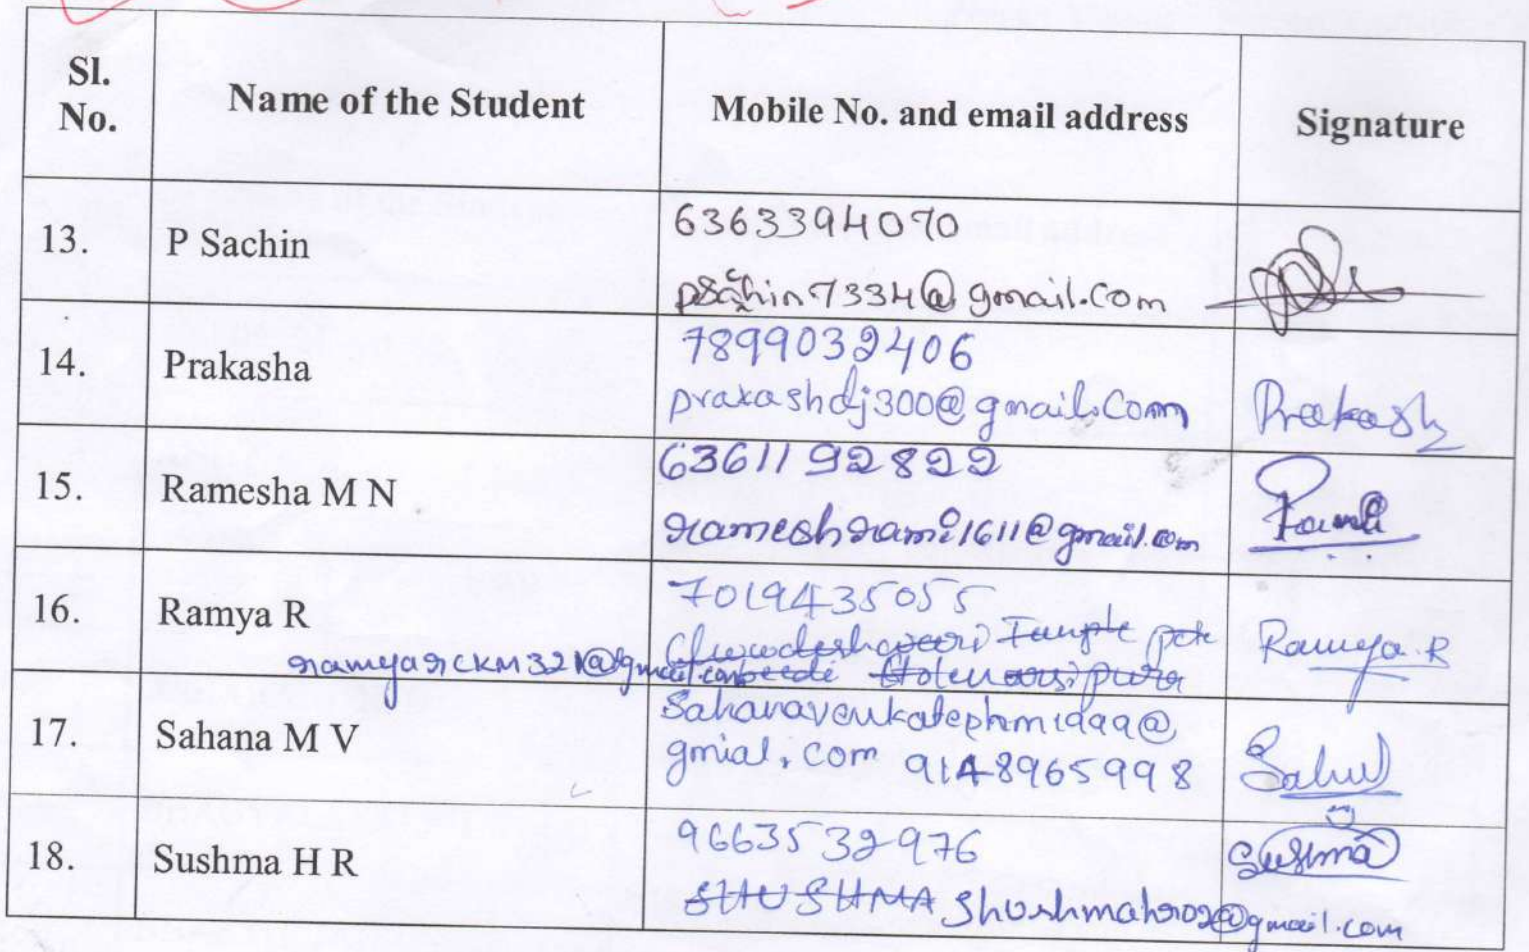 Sl. No.
Name of the Student
Mobile No. and email address
Signature
13.
P Sachin
6363394070
psachin7334@gmail.com
14.
Prakasha
7899032406
prakashdj300@gmail.com
Prakash
15.
Ramesha M N
6361192822
rameshrami1611@gmail.com
16.
Ramya R
7019435055
Temple
ramyarckm321@gmail.com beedi Holenarsipura
Ramya.R
17.
Sahana M V
gmial.com 9148965998
18.
Sushma H R
9663532976
SHUSHMA shushmahr02@gmail.com
Sushma